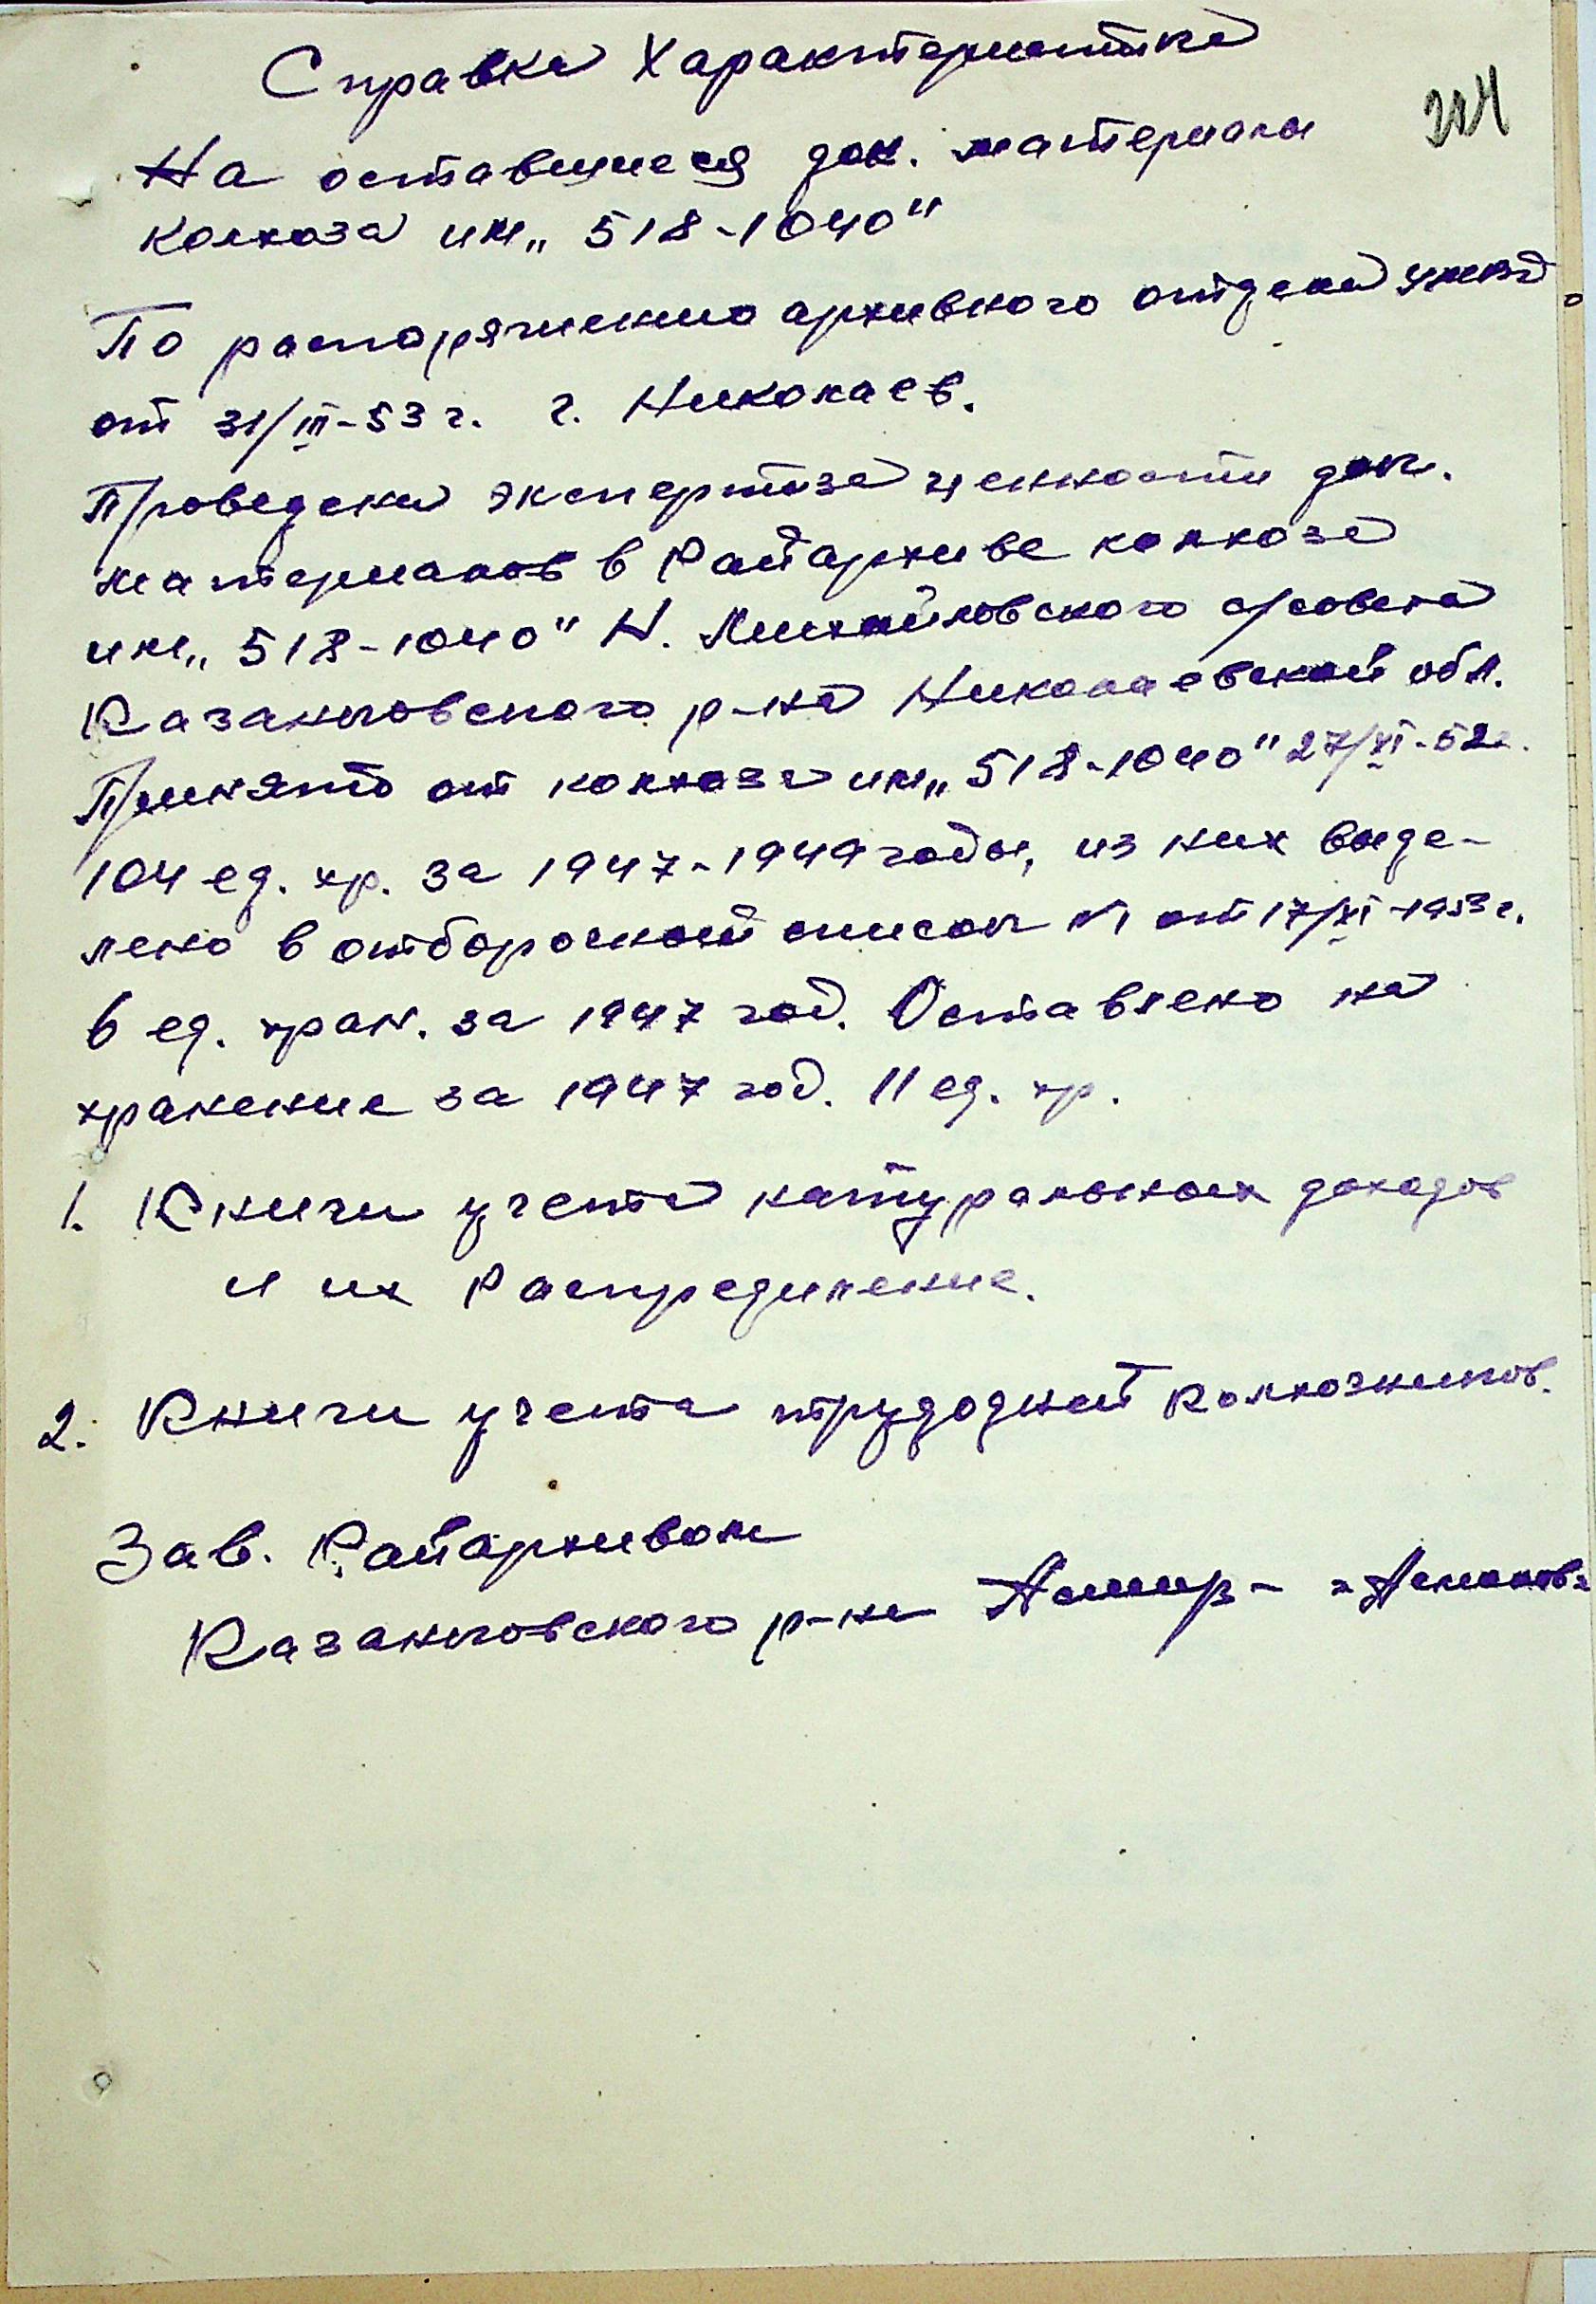 Справка Характеристика
На оставшиеся док. материалы
колхоза им „518-1040"
По распоряжению архивного отдела УМВД
от 31/III-53 г. г. Николаев.
Проведена экспертиза ценности док.
материалов в Райархиве колхоза
им „518-1040" Н. Михайловского с/совета
Казанковского р-на Николаевской обл.
Принято от колхоза им „518-1040" 27/XI-52г.
104 ед. хр. за 1947-1949 годы, из них выде-
лено в отборочный список №1 от 17/XI-1953 г.
6 ед. хран. за 1947 год. Оставлено на
хранение за 1947 год. 11 ед. хр.
1. Книги учета натуральных доходов
и их Распределение.
2. Книги учета трудодней колхозников.
Зав. Райархивом
Казанковского р-на